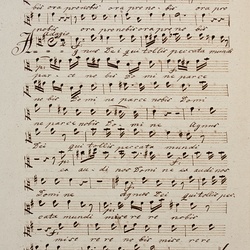 bis ora pro nobis ora pro no- bis ora pro
nobis ora pro nobis ora pro no bis
Agnus Dei qui tollis peccata mundi
par- ce no bis Do mi ne parce
no bis Do mi ne parce nobis Domi
ne parce nobis Domi ne Agnus
Dei qui tollis peccata mundi
ex au- di nos Domi ne ex audi nos
Domi ne agnus Dei qui tollis pec-
cata mundi mise re re nobis
mise re re no bis mise rere